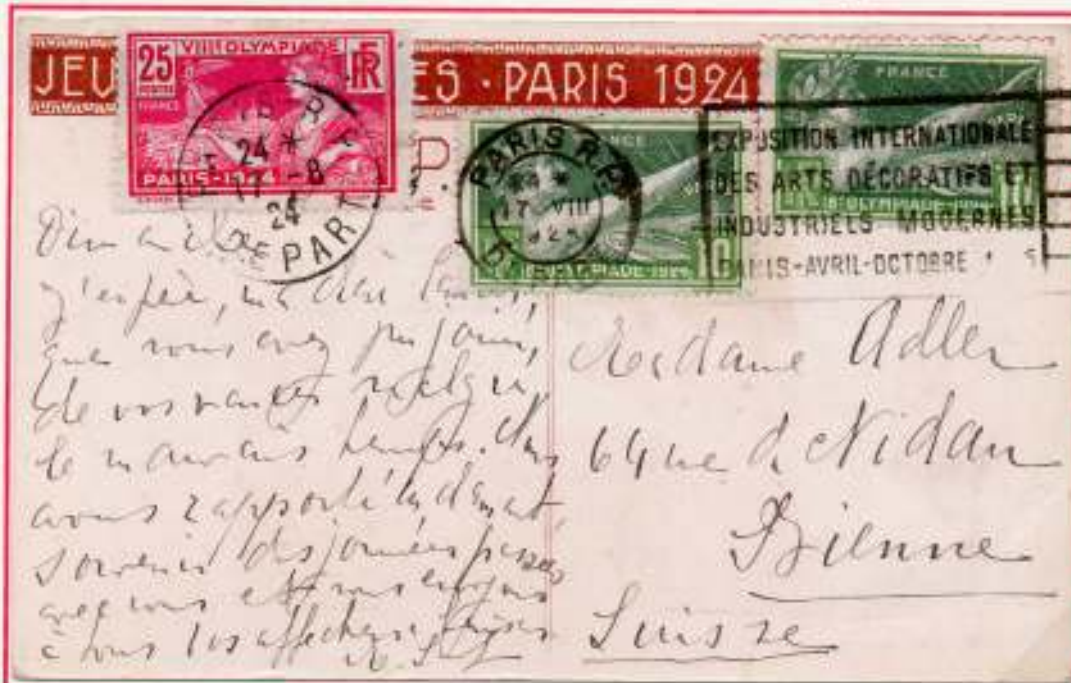 JEU ES · PARIS 1924
25 VIIIe OLYMPIADE RF
FRANCE
PARIS-1924
24 *
17 -8
24
DEPART
P.
PARIS R.P.
17 VIII
FRANCE
8e OLYMPIADE-1924 10
FRANCE
8e OLYMPIADE-1924 10
EXPOSITION INTERNATIONALE
DES ARTS DÉCORATIFS ET
INDUSTRIELS MODERNES
PARIS-AVRIL-OCTOBRE
Dimanche
que vous avez pu jouir,
de vos vacances malgré
le mauvais temps. Nous
avons rapporté
souvenir des journées passées
avec vous et vous envoyons
à tous les affectueux
Madame Adler
64 rue de Nidau
Bienne
Suisse